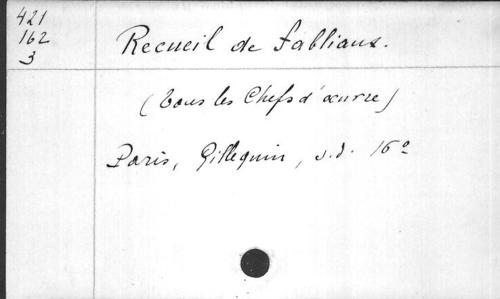 421
162
3
Recueil de fabliaux.
(Tous les Chefs d'œuvre)
Paris, Gillequin, s.d. 16º